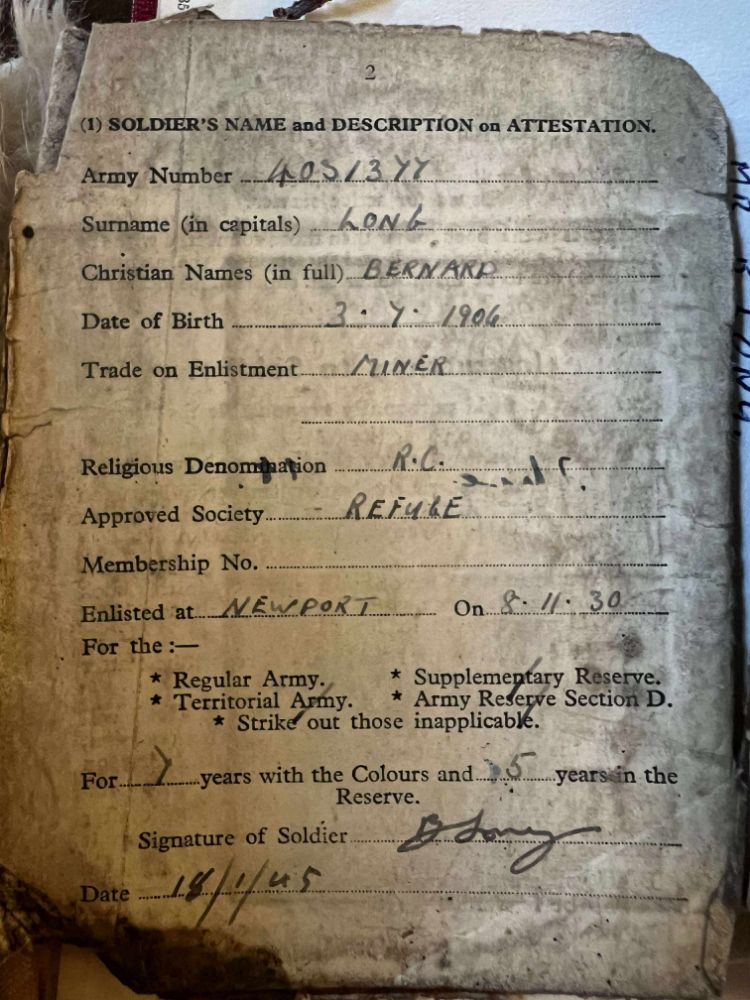 2
(1) SOLDIER'S NAME and DESCRIPTION on ATTESTATION.
Army Number 4031377
Surname (in capitals) LONG
Christian Names (in full) BERNARD
Date of Birth 3.7.1906
Trade on Enlistment MINER
Religious Denomination R.C.
Approved Society REFUGE
Membership No.
Enlisted at NEWPORT On 8.11.30
For the :—
* Regular Army. * Supplementary Reserve.
* Territorial Army. * Army Reserve Section D.
* Strike out those inapplicable.
For 7 years with the Colours and 5 years in the
Reserve.
Signature of Soldier B Long
Date 18/1/45